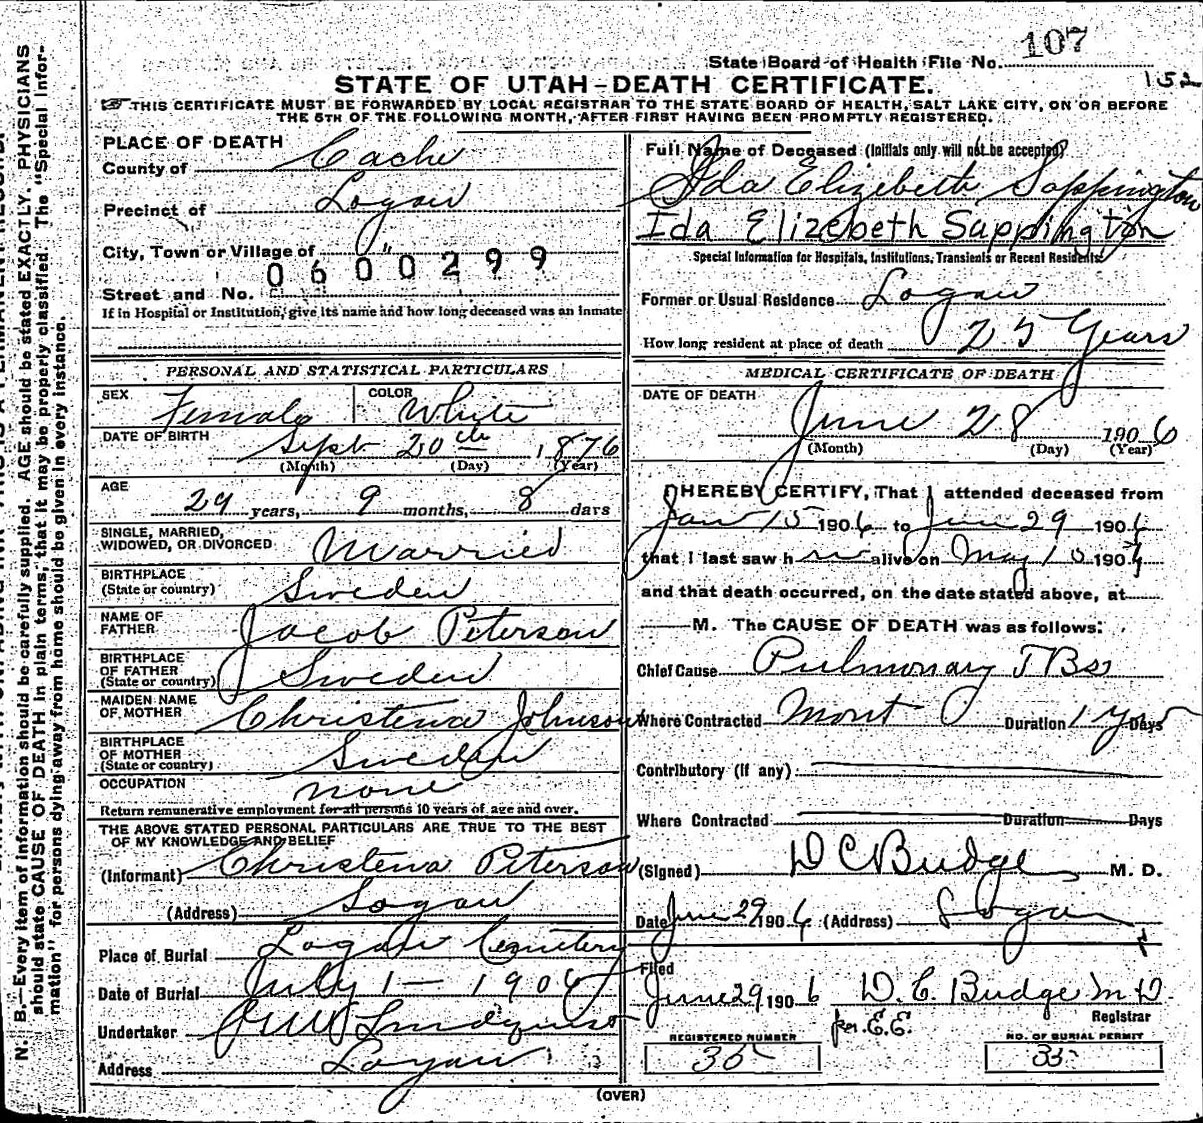 107
State Board of Health File No.
152
STATE OF UTAH–DEATH CERTIFICATE.
THIS CERTIFICATE MUST BE FORWARDED BY LOCAL REGISTRAR TO THE STATE BOARD OF HEALTH, SALT LAKE CITY, ON OR BEFORE
THE 5TH OF THE FOLLOWING MONTH, AFTER FIRST HAVING BEEN PROMPTLY REGISTERED.
PLACE OF DEATH
County of Cache
Precinct of Logan
City, Town or Village of "
0600299
Street and No.
If in Hospital or Institution, give its name and how long deceased was an inmate
PERSONAL AND STATISTICAL PARTICULARS
SEX Female COLOR White
DATE OF BIRTH Sept 20th 1876
(Month) (Day) (Year)
AGE 29 years, 9 months, 8 days
SINGLE, MARRIED,
WIDOWED, OR DIVORCED Married
BIRTHPLACE
(State or country) Sweden
NAME OF
FATHER Jacob Peterson
BIRTHPLACE
OF FATHER
(State or country) Sweden
MAIDEN NAME
OF MOTHER Christena Johnson
BIRTHPLACE
OF MOTHER
(State or country) Sweden
OCCUPATION none
Return remunerative employment for all persons 10 years of age and over.
THE ABOVE STATED PERSONAL PARTICULARS ARE TRUE TO THE BEST
OF MY KNOWLEDGE AND BELIEF
(Informant) Christena Peterson
(Address) Logan
Place of Burial Logan Cemetery
Date of Burial July 1 – 1906
Undertaker Lindquist
Address Logan
Full Name of Deceased (Initials only will not be accepted)
Ida Elizebeth Sappington
Ida Elizebeth Sappington
Special Information for Hospitals, Institutions, Transients or Recent Residents
Former or Usual Residence Logan
How long resident at place of death 25 Years
MEDICAL CERTIFICATE OF DEATH
DATE OF DEATH
June 28 1906
(Month) (Day) (Year)
I HEREBY CERTIFY, That I attended deceased from
Jan 15 1906 to June 29 1906
that I last saw her alive on May 10 190
and that death occurred, on the date stated above, at
M. The CAUSE OF DEATH was as follows:
Chief Cause Pulmonary TBs
Where Contracted Mont Duration 1 yr Days
Contributory (if any)
Where Contracted Duration Days
(Signed) D C Budge M. D.
Date June 29 1906 (Address) Logan
Filed
June 29 1906 D. C. Budge M D.
Registrar
per. E.E.
REGISTERED NUMBER
35
NO. OF BURIAL PERMIT
35
(OVER)
N. B.—Every item of information should be carefully supplied. AGE should be stated EXACTLY. PHYSICIANS
should state CAUSE OF DEATH in plain terms, that it may be properly classified. The "Special Infor-
mation" for persons dying away from home should be given in every instance.